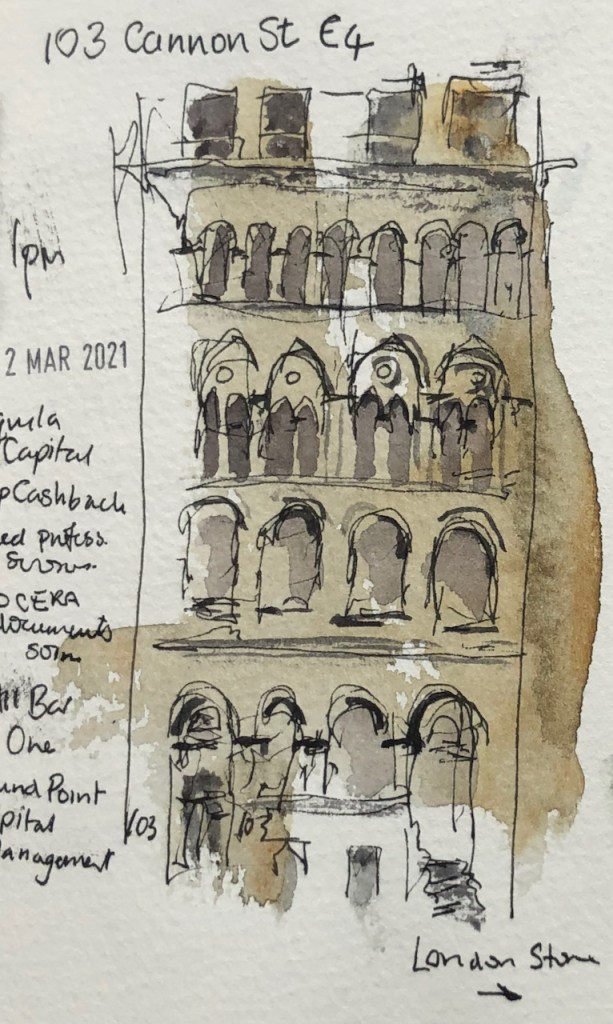 103 Cannon St E4
1pm
2 MAR 2021
Capital
pCashback
ed
OCERA
documents
Bar
One
und Point
pital
anagement
103
10
London Stone
→